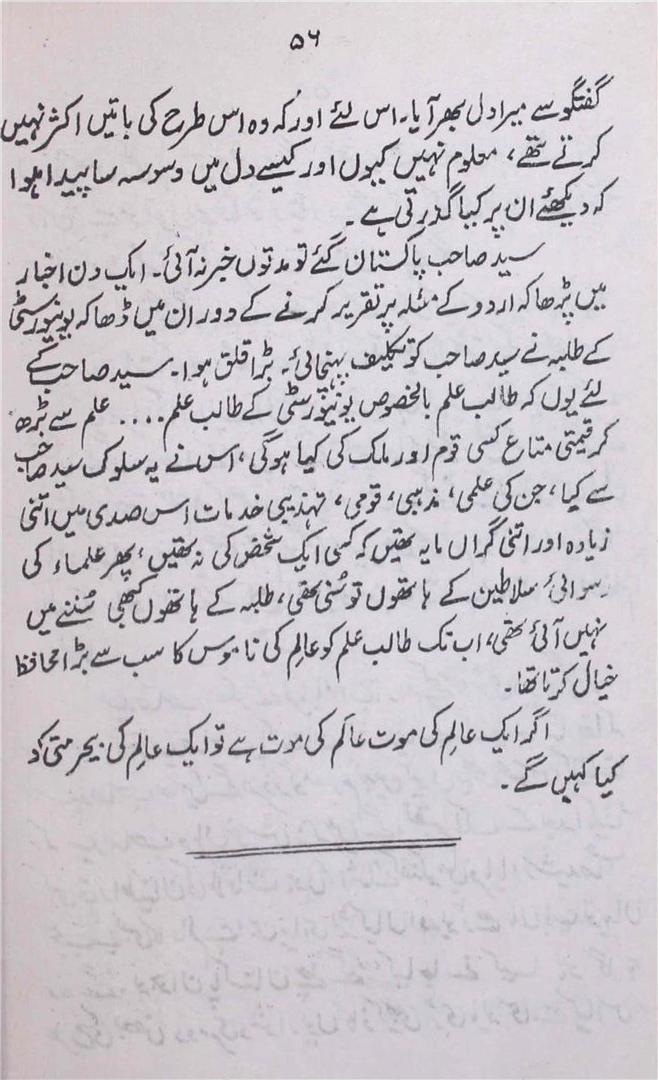 ۵۶
گفتگو سے میرا دل بھر آیا۔ اس لئے اور کہ وہ اس طرح کی باتیں اکثر نہیں
کرتے تھے، معلوم نہیں کیوں اور کیسے دل میں وسوسہ سا پیدا ہوا
کہ دیکھئے ان پر کیا گذرتی ہے۔
سید صاحب پاکستان گئے تو مدتوں خبر نہ آئی۔ ایک دن اخبار
میں پڑھا کہ اردو کے مسئلہ پر تقریر کرنے کے دوران میں ڈھاکہ یونیورسٹی
کے طلبہ نے سید صاحب کو تکلیف پہنچائی۔ بڑا قلق ہوا۔ سید صاحب کے
لئے یوں کہ طالب علم بالخصوص یونیورسٹی کے طالب علم .... علم سے بڑھ
کر قیمتی متاع کسی قوم اور ملک کی کیا ہوگی، اس نے یہ سلوک سید صاحب
سے کیا، جن کی علمی، مذہبی، قومی، تہذیبی خدمات اس صدی میں اتنی
زیادہ اور اتنی گراں مایہ تھیں کہ کسی ایک شخص کی نہ تھیں، پھر علماء کی
رسوائی سلاطین کے ہاتھوں تو سُنی تھی، طلبہ کے ہاتھوں کبھی سُننے میں
نہیں آئی تھی، اب تک طالب علم کو عالِم کی ناموس کا سب سے بڑا محافظ
خیال کرتا تھا۔
اگر ایک عالِم کی موت عالَم کی موت ہے تو ایک عالِم کی بیحرمتی کو
کیا کہیں گے۔